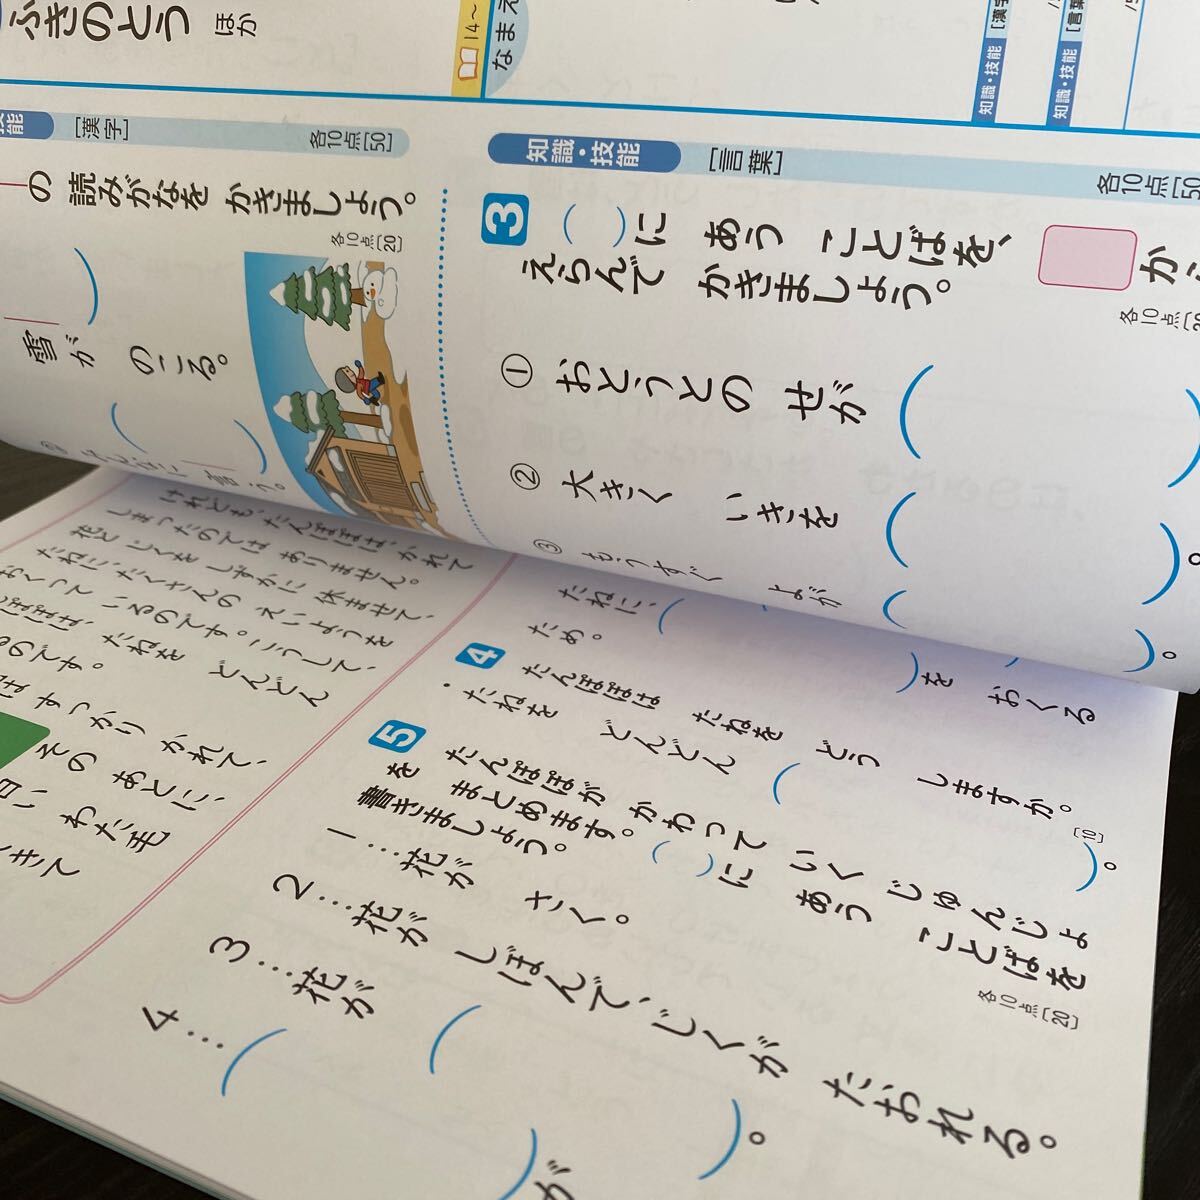 ふきのとう ほか
14～
なまえ
知識・技能 [漢字
知識・技能 [言葉
技能 [漢字] 各10点[50]
の 読みがなを かきましょう。
各10点[20]
雪が のこる。
言う。
知識・技能 [言葉] 各10点[50
3 ( )に あう ことばを、 から
えらんで かきましょう。
各10点
① おとうとの せが ( )
② 大きく いきを ( )。
③ もうすぐ よが ( )。
けれども、たんぽぽは、かれて
しまったのでは ありません。
花と じくを しずかに 休ませて、
たねに、たくさんの えいようを
おくって いるのです。こうして、
たんぽぽは、たねを どんどん
のです。
すっかり かれて、
その あとに、
白い わた毛
できて
たねに、( )を おくる
ため。
4 たんぽぽは たねを どう しますか。
[10]
・たねを どんどん ( )。
5 たんぽぽが かわって いく じゅんじょ
を まとめます。( )に あう ことばを
書きましょう。
各10点[20]
1…花が さく。
2…花が しぼんで、じくが たおれる。
3…花が ( )。
4…( )が